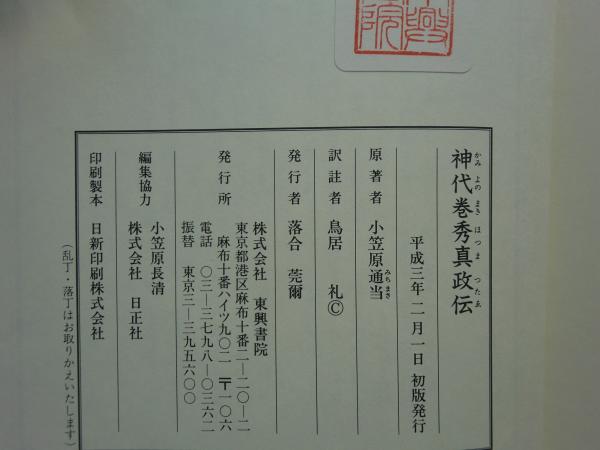 神代巻秀真政伝
かみ よの まき ほつま つたゑ
平成三年二月一日 初版発行
原著者 小笠原通当
みちまさ
訳註者 鳥居 礼©
発行者 落合 莞爾
発行所 株式会社 東興書院
東京都港区麻布十番二―二〇―二
麻布十番ハイツ九〇二 〒一〇六
電話 〇三―三七九八―〇三六二
振替 東京三―三九五六〇〇
編集協力 小笠原長清
株式会社 日正社
印刷製本 日新印刷株式会社
(乱丁・落丁はお取りかえいたします)